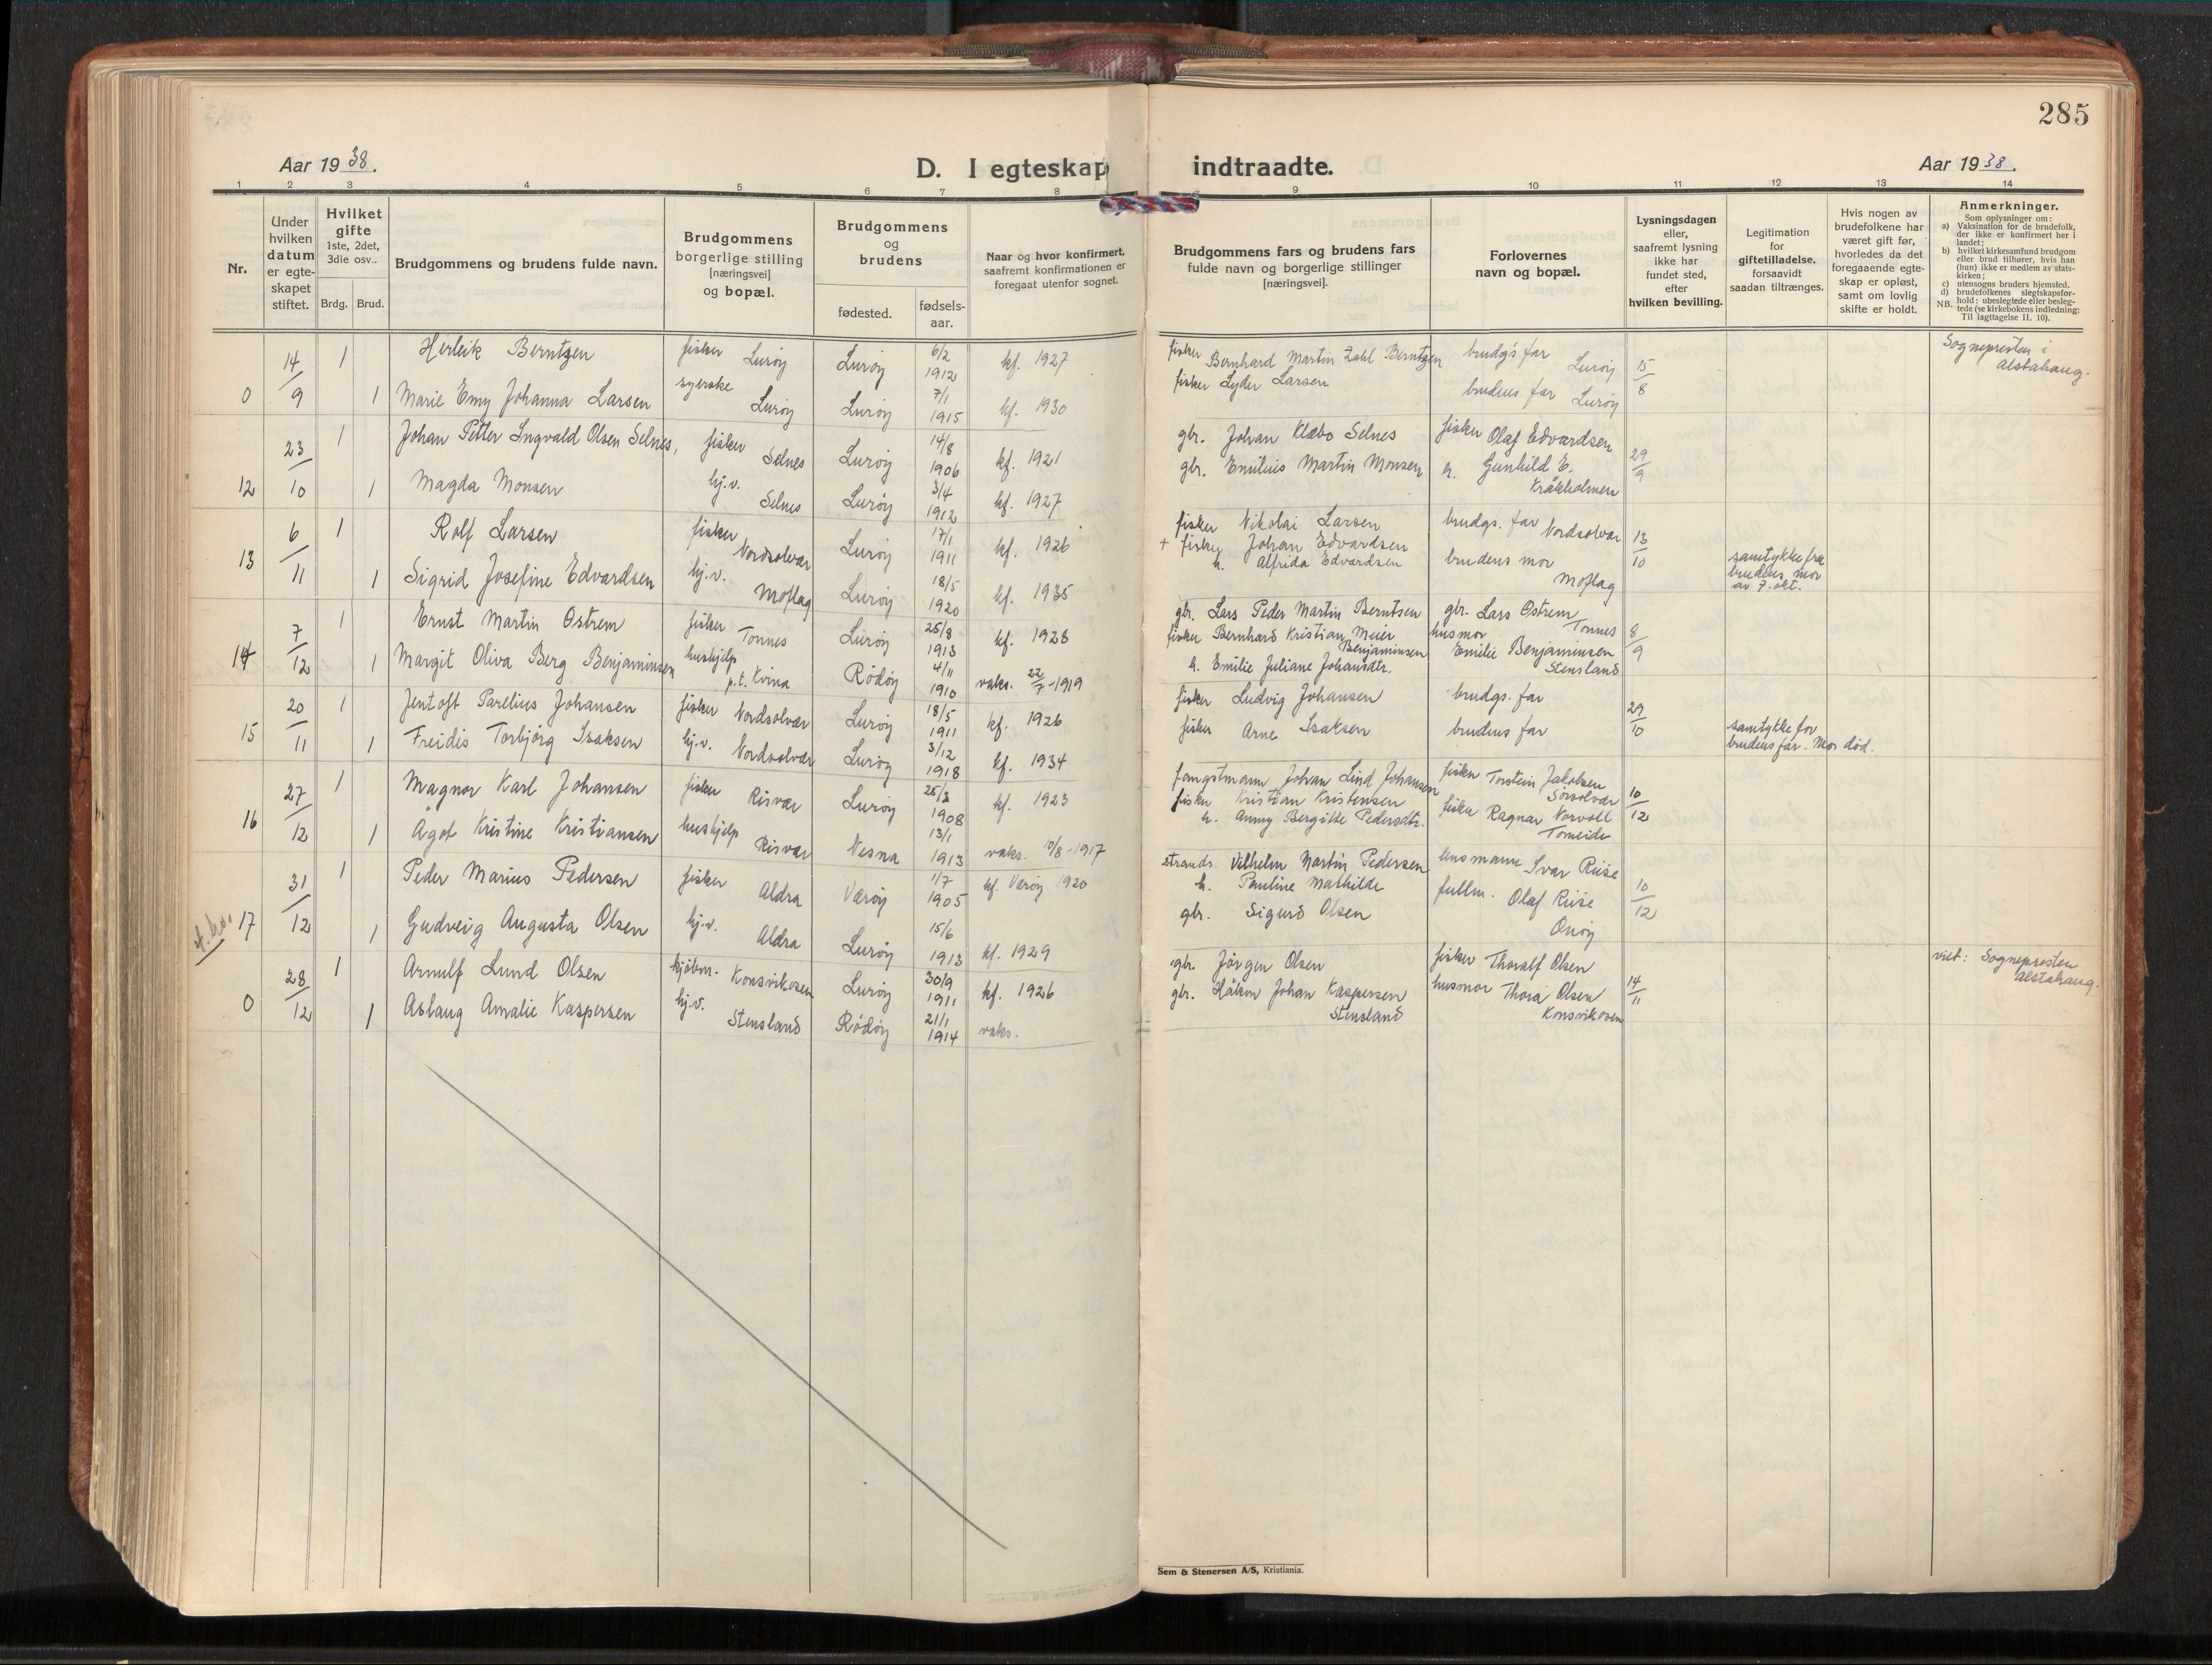 285
Aar 1938.
D. I egteskap indtraadte.
Aar 1938.
1 2 3 4 5 6 7 8 9 10 11 12 13 14
Nr.
Under
hvilken
datum
er egte-
skapet
stiftet.
Hvilket
gifte
1ste, 2det,
3die osv..
Brdg. Brud.
Brudgommens og brudens fulde navn.
Brudgommens
borgerlige stilling
[næringsvei]
og bopæl.
Brudgommens
og
brudens
fødested.
fødsels-
aar.
Naar og hvor konfirmert,
saafremt konfirmationen er
foregaat utenfor sognet.
Brudgommens fars og brudens fars
fulde navn og borgerlige stillinger
[næringsvei].
Forlovernes
navn og bopæl.
Lysningsdagen
eller,
saafremt lysning
ikke har
fundet sted,
efter
hvilken bevilling.
Legitimation
for
giftetilladelse,
forsaavidt
saadan tiltrænges.
Hvis nogen av
brudefolkene har
været gift før,
hvorledes da det
foregaaende egte-
skap er opløst,
samt om lovlig
skifte er holdt.
Anmerkninger.
Som oplysninger om:
a) Vaksination for de brudefolk,
der ikke er konfirmert her i
landet;
b) hvilket kirkesamfund brudgom
eller brud tilhører, hvis han
(hun) ikke er medlem av stats-
kirken;
c) utensogns bruders hjemsted.
d) brudefolkenes slegtskapsfor-
hold: ubeslegtede eller besleg-
tede (se kirkebokens indledning:
NB. Til iagttagelse II. 10).
14/9 1 Herleik Berntzen fisker Lurøy Lurøy 6/2 1912 kf. 1927 fisker Bernhard Martin Zahl Berntzen brudg's far Lurøy 15/8 Sognepresten i Alstahaug.
0 1 Marie Emy Johanna Larsen syerske Lurøy Lurøy 7/1 1915 kf. 1930 fisker Lyder Larsen brudens far Lurøy
23/10 1 Johan Petter Ingvald Olsen Selnes, fisker Selnes Lurøy 14/8 1906 kf. 1921 gbr. Johan Klæbo Selnes fisker Olaf Edvardsen 29/9
12 1 Magda Monsen hj.v. Selnes Lurøy 3/4 1912 kf. 1927 gbr. Emilius Martin Monsen h. Gunhild E. Kråkholmen
6/11 1 Rolf Larsen fisker Nordsolvær Lurøy 17/1 1911 kf. 1926 fisker Nikolai Larsen brudgs. far Nordsolvær 13/10
13 1 Sigrid Josefine Edvardsen hj.v. Moflag Lurøy 18/5 1920 kf. 1935 + fisker Johan Edvardsen h. Alfrida Edvardsen brudens mor Moflag samtykke fra brudens mor av 7. okt.
7/12 1 Ernst Martin Østrem fisker Tonnes Lurøy 25/8 1913 kf. 1928 gbr. Lars Peder Martin Berntsen gbr. Lars Østrem Tonnes 8/9
14 1 Margit Oliva Berg Benjaminsen hushjelp p.t. Kvina Rødøy 4/11 1910 vaks. 22/7-1919 fisker Bernhard Kristian Meier Benjaminsen h. Emilie Juliane Johansdtr. husmor Emilie Benjaminsen Stensland
20/11 1 Jentoft Parelius Johansen fisker Nordsolvær Lurøy 18/5 1911 kf. 1926 fisker Ludvig Johansen brudgs. far 29/10
15 1 Freidis Torbjørg Isaksen hj.v. Nordsolvær Lurøy 3/12 1918 kf. 1934 fisker Arne Isaksen brudens far samtykke for brudens far. Mor død.
27/12 1 Magnor Karl Johansen fisker Risvær Lurøy 25/3 1908 kf. 1923 fangstmann Johan Lind Johansen fisker Torstein Jakobsen Sørsolvær 10/12
16 1 Ågot Kristine Kristiansen hushjelp Risvær Nesna 13/1 1913 vaks. 10/8-1917 fisker Kristian Kristensen h. Anny Bergitte Pedersdtr. fisker Ragnar Vorvoll Tomeide
31/12 1 Peder Marius Pedersen fisker Aldra Værøy 1/7 1905 kf. Værøy 1920 strands. Vilhelm Martin Pedersen h. Pauline Mathilde lensmann Ivar Riise 10/12
17 1 Gudveig Augusta Olsen hj.v. Aldra Lurøy 15/6 1913 kf. 1929 gbr. Sigurd Olsen fullm. Olaf Riise Onøy
28/12 1 Arnulf Lund Olsen kjøbm. Konsvikosen Lurøy 30/9 1911 kf. 1926 gbr. Jørgen Olsen fisker Thoralf Olsen 14/11 viet: Sognepresten Alstahaug.
0 1 Aslaug Amalie Kaspersen hj.v. Stensland Rødøy 21/1 1914 vaks. gbr. Håkon Johan Kaspersen Stensland husmor Thora Olsen Konsvikosen
Sem & Stenersen A/S, Kristiania.